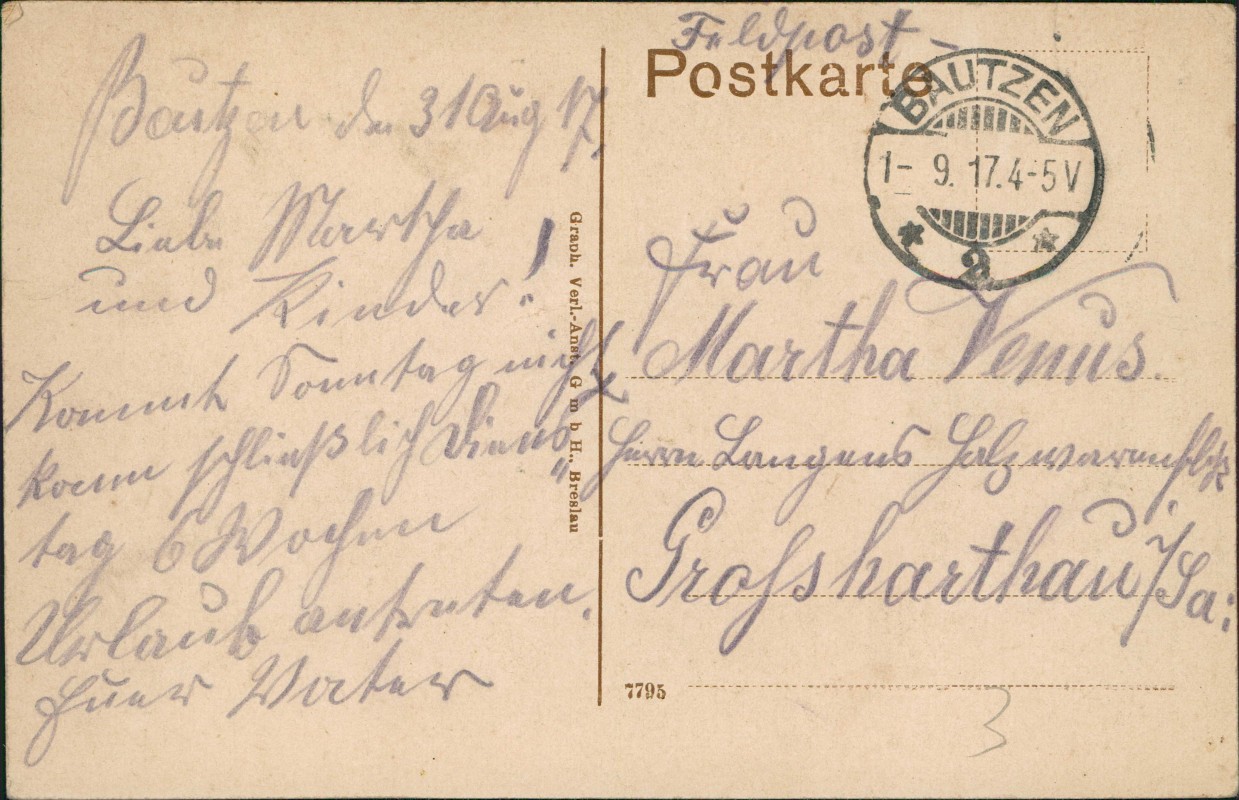 Bautzen den 31 Aug 17.
Liebe Martha
und Kinder!
Kommt Sonntag nicht
kann schließlich Diens„
tag 6 Wochen
Urlaub antreten.
Euer Vater
Graph. Verl.-Anst. G m b H., Breslau
Feldpost –
Postkarte
BAUTZEN
1- 9. 17. 4-5 V
* 2 *
Frau
Martha Venus.
Herrn Langens Holzwarenfbk
Grossharthau i/Sa:
7795
3